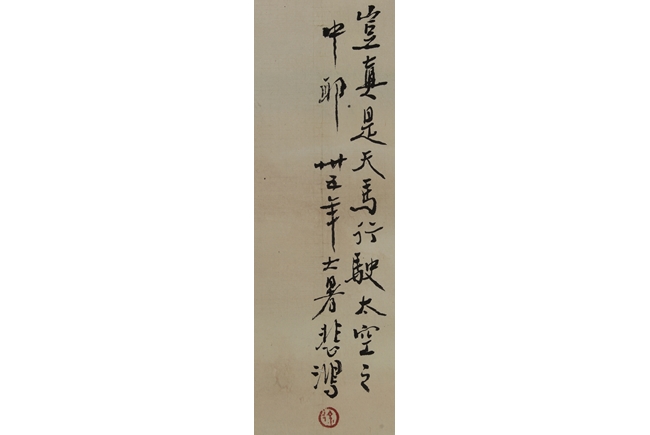 豈真是天馬行駛太空之
中耶 卅五年大暑悲鴻